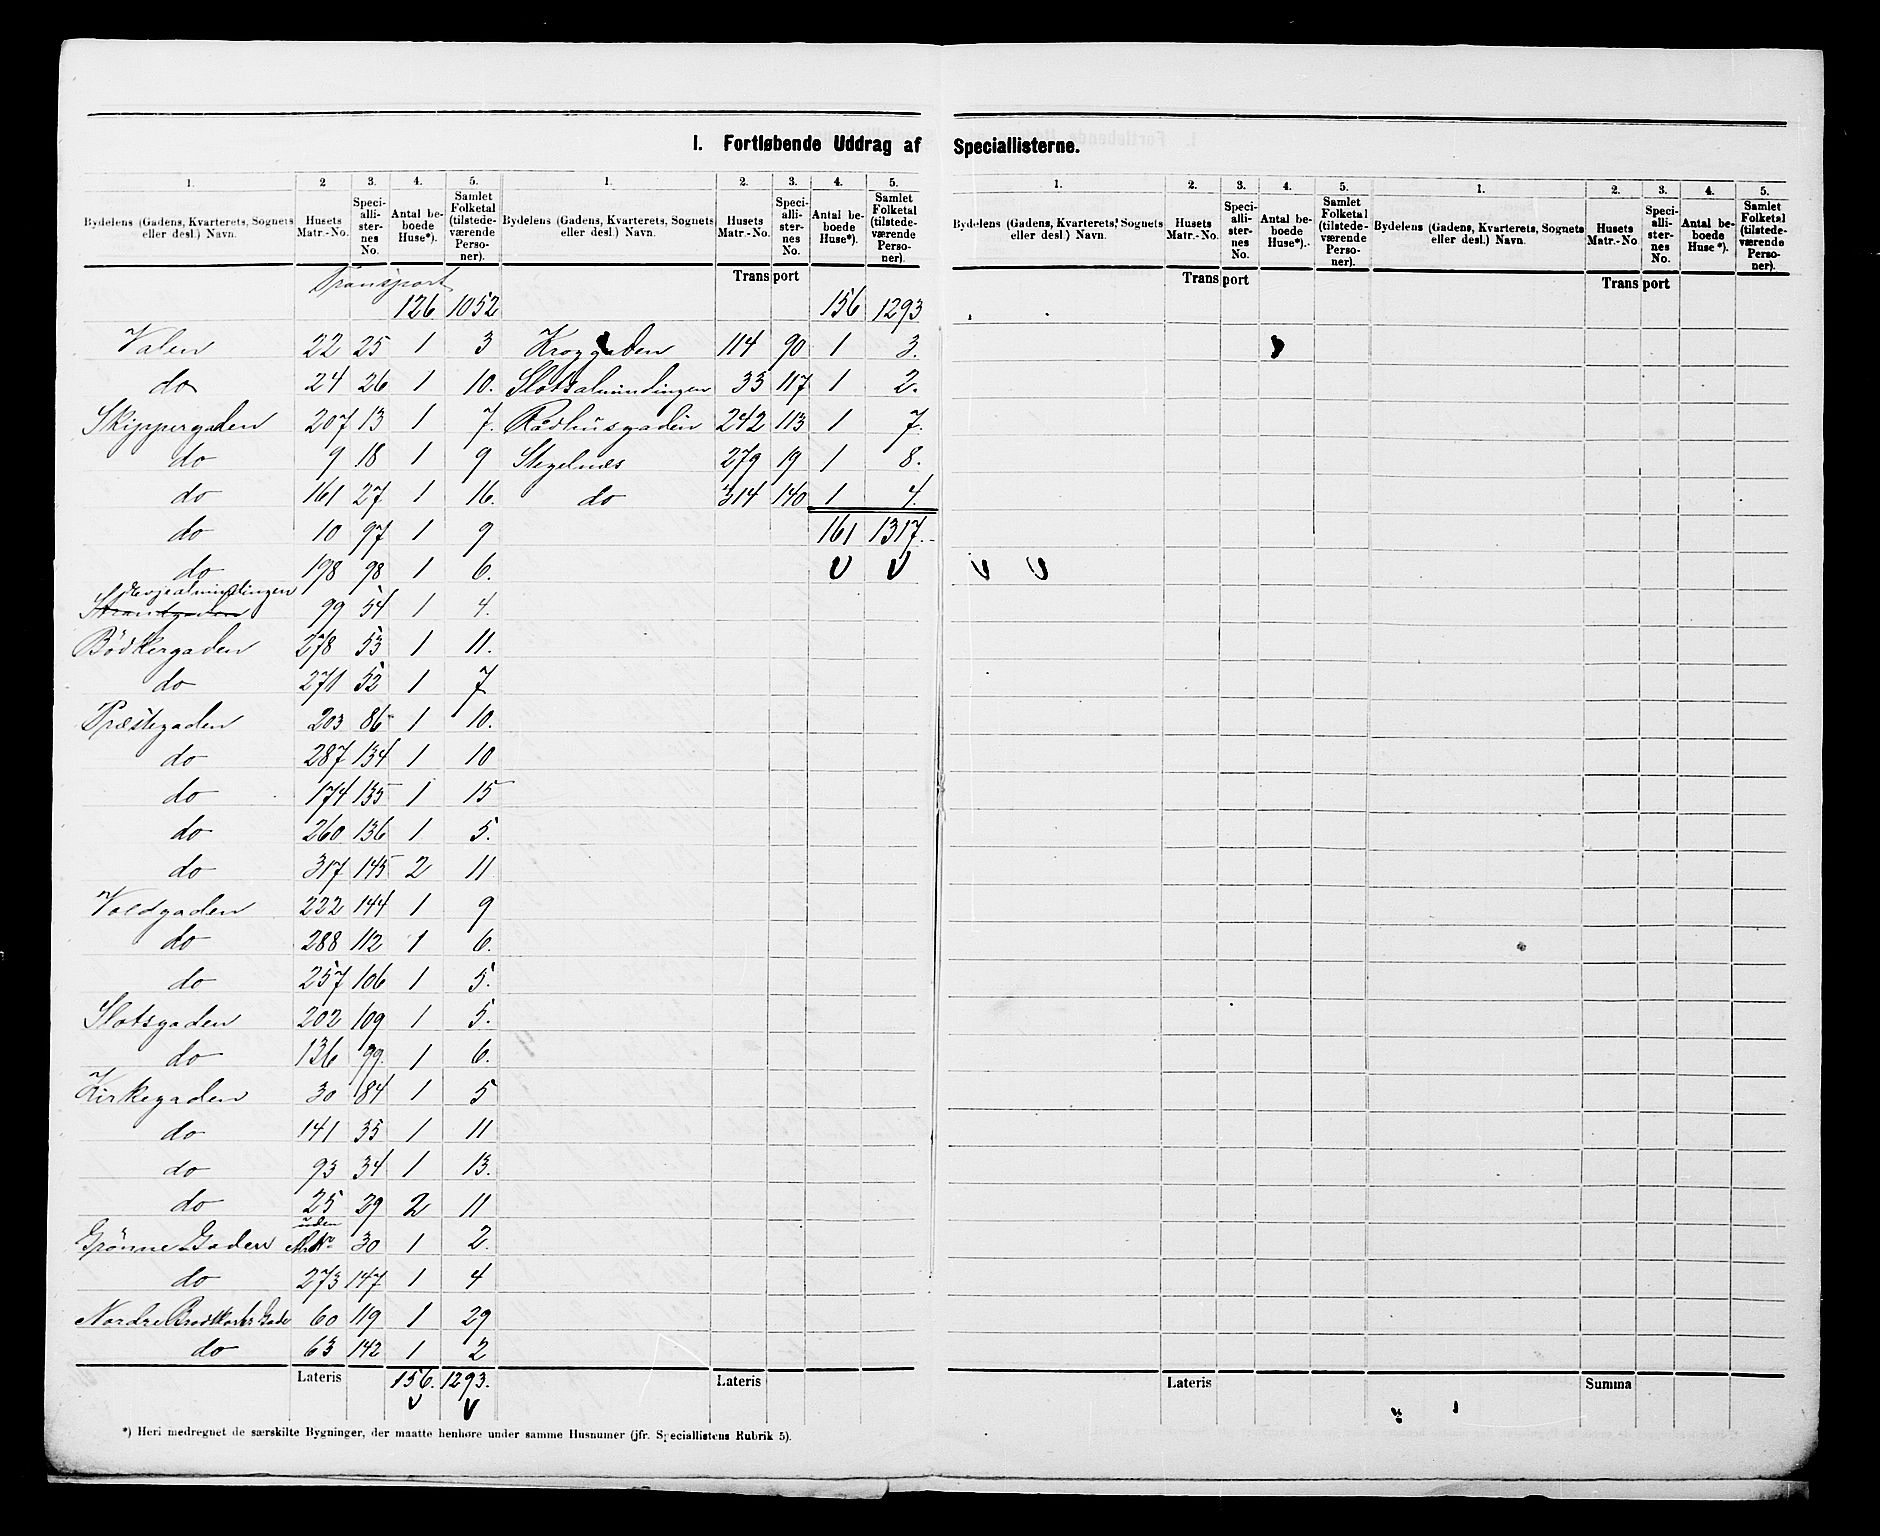 I. Fortløbende Uddrag af Speciallisterne.
1. 2 3. 4. 5. 1. 2. 3. 4. 5.
Bydelens (Gadens, Kvarterets, Sognets eller desl.) Navn. Husets Matr.-No. Speciallisternes No. Antal beboede Huse*). Samlet Folketal (tilstedeværende Personer). Bydelens (Gadens, Kvarterets, Sognets eller desl.) Navn. Husets Matr.-No. Speciallisternes No. Antal beboede Huse*). Samlet Folketal (tilstedeværende Personer).
Transport 126 1052
Valen 22 25 1 3
do 24 26 1 10.
Skippergaden 207 13 1 7.
do 9 18 1 9
do 161 27 1 16.
do 10 97 1 9
do 198 98 1 6.
Strandgaden 99 54 1 4.
Bödkergaden 278 53 1 11.
do 271 52 1 7
Præstegaden 203 86 1 10.
do 287 134 1 10
do 174 135 1 15
do 260 136 1 5.
do 317 145 2 11
Voldgaden 222 144 1 9
do 288 112 1 6.
do 257 106 1 5.
Slotsgaden 202 109 1 5.
do 136 99 1 6.
Kirkegaden 30 84 1 5
do 141 35 1 11
do 93 34 1 13.
do 25 29 2 11
Grönne Gaden uden 30 1 2.
do 273 147 1 4
Nordre Brodkorbs Gade 60 119 1 29
do 63 142 1 2
Lateris 156. 1293.
Transport 156 1293
Kroggaden 114 90 1 3.
Slotsalmindingen 33 117 1 2.
Rådhusgaden 242 113 1 7.
Stegelnæs 279 19 1 8.
do 314 140 1 4.
161 1317.
Lateris
*) Heri medregnet de særskilte Bygninger, der maatte henhøre under samme Husnumer (jfr. Speciallistens Rubrik 5).
1. 2. 3. 4. 5. 1. 2. 3. 4. 5.
Bydelens (Gadens, Kvarterets, Sognets eller desl.) Navn. Husets Matr.-No. Speciallisternes No. Antal beboede Huse*). Samlet Folketal (tilstedeværende Personer). Bydelens (Gadens, Kvarterets, Sognets eller desl.) Navn. Husets Matr.-No Speciallisternes No. Antal beboede Huse*). Samlet Folketal (tilstedeværende Personer).
Transport Transport
Lateris Summa